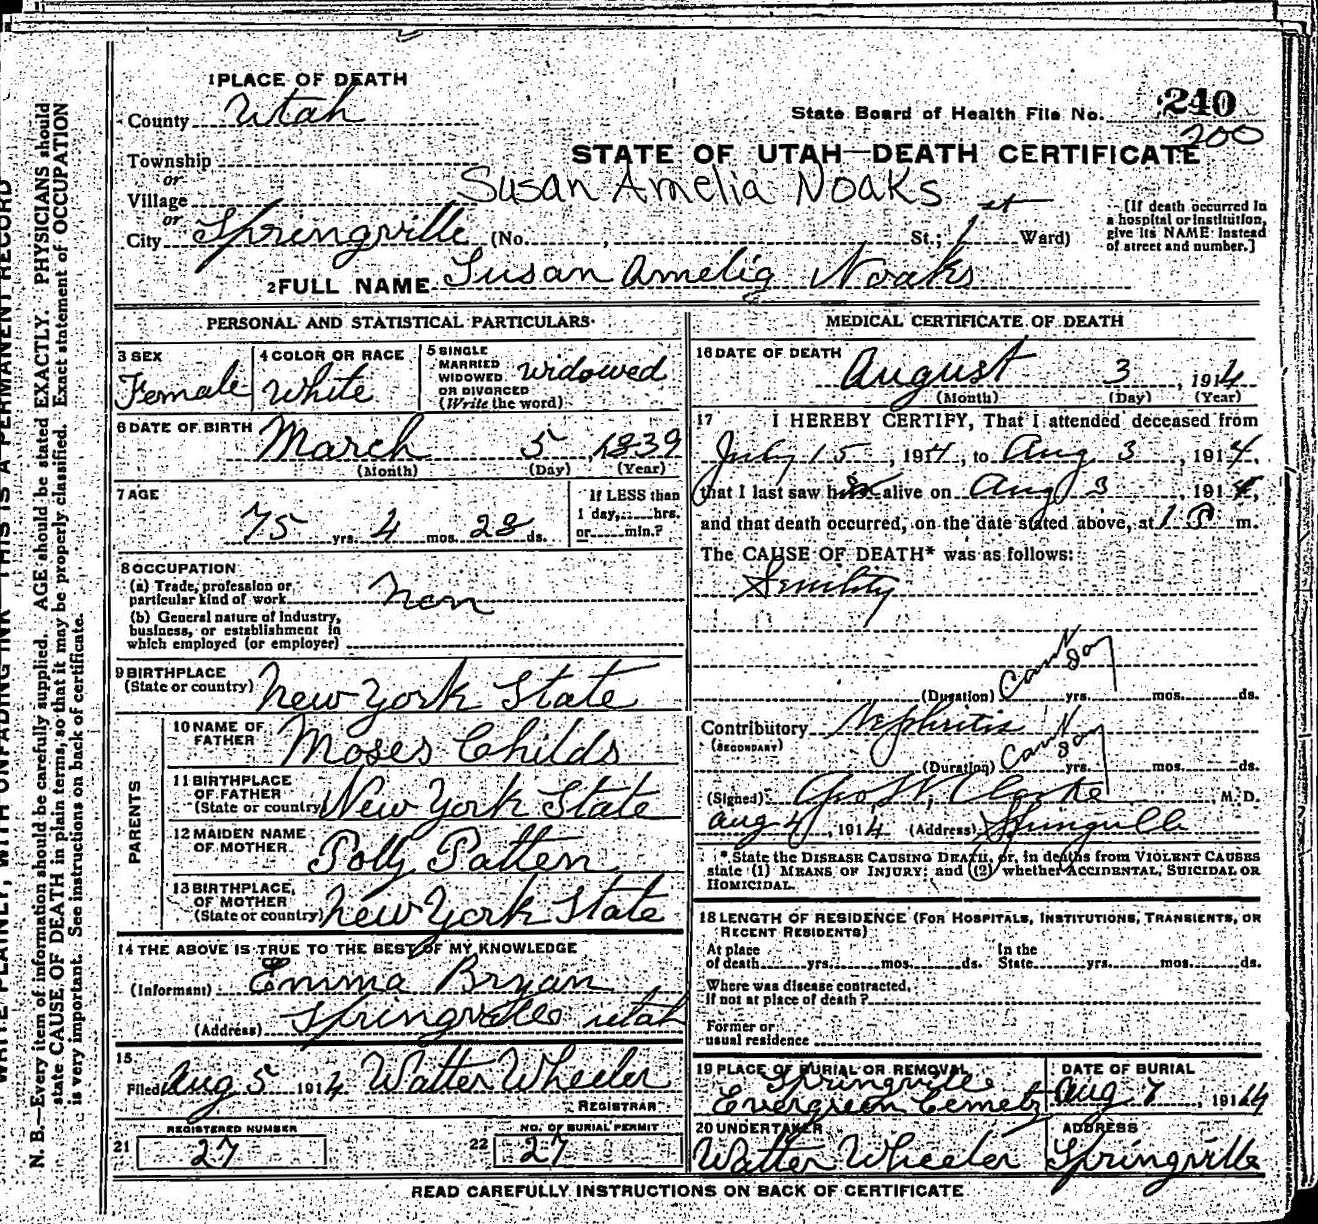 1 PLACE OF DEATH
County Utah
State Board of Health File No. 240
200
Township
or
STATE OF UTAH—DEATH CERTIFICATE
Village
Susan Amelia Noaks
or
City Springville (No. , St.; 1st Ward)
[If death occurred in
a hospital or institution,
give its NAME instead
of street and number.]
2 FULL NAME Susan Amelia Noaks
PERSONAL AND STATISTICAL PARTICULARS
3 SEX
Female
4 COLOR OR RACE
White
5 SINGLE
MARRIED
WIDOWED
OR DIVORCED
(Write the word)
widowed
6 DATE OF BIRTH March 5, 1839
(Month) (Day) (Year)
7 AGE
75 yrs. 4 mos. 28 ds.
If LESS than
1 day, hrs.
or min.?
8 OCCUPATION
(a) Trade, profession or
particular kind of work Non
(b) General nature of Industry,
business, or establishment in
which employed (or employer)
9 BIRTHPLACE
(State or country) New York State
PARENTS
10 NAME OF
FATHER Moses Childs
11 BIRTHPLACE
OF FATHER
(State or country) New York State
12 MAIDEN NAME
OF MOTHER Polly Patten
13 BIRTHPLACE
OF MOTHER
(State or country) New York State
14 THE ABOVE IS TRUE TO THE BEST OF MY KNOWLEDGE
(Informant) Emma Bryan
(Address) Springville utah
15
Filed Aug 5 1914 Walter Wheeler
REGISTRAR
REGISTERED NUMBER
21 27
NO. OF BURIAL PERMIT
22 27
MEDICAL CERTIFICATE OF DEATH
16 DATE OF DEATH August 3, 1914
(Month) (Day) (Year)
17 I HEREBY CERTIFY, That I attended deceased from
July 15, 1914, to Aug 3, 1914,
that I last saw h alive on Aug 3, 1914,
and that death occurred, on the date stated above, at 1 P m.
The CAUSE OF DEATH* was as follows:
Senility
(Duration) Can N say yrs. mos. ds.
Contributory Nephritis
(SECONDARY)
(Duration) Can N say yrs. mos. ds.
(Signed) Geo W. Clarke, M. D.
Aug 4, 1914 (Address) Springville
* State the DISEASE CAUSING DEATH, or, in deaths from VIOLENT CAUSES
state (1) MEANS OF INJURY; and (2) whether ACCIDENTAL, SUICIDAL OR
HOMICIDAL.
18 LENGTH OF RESIDENCE (FOR HOSPITALS, INSTITUTIONS, TRANSIENTS, OR
RECENT RESIDENTS)
At place
of death yrs. mos. ds.
In the
State yrs. mos. ds.
Where was disease contracted,
if not at place of death?
Former or
usual residence
19 PLACE OF BURIAL OR REMOVAL
Springville
Evergreen Cemety
DATE OF BURIAL
Aug 7, 1914
20 UNDERTAKER
Walter Wheeler
ADDRESS
Springville
READ CAREFULLY INSTRUCTIONS ON BACK OF CERTIFICATE
WRITE PLAINLY, WITH UNFADING INK—THIS IS A PERMANENT RECORD
N. B.—Every item of information should be carefully supplied. AGE should be stated EXACTLY. PHYSICIANS should
state CAUSE OF DEATH in plain terms, so that it may be properly classified. Exact statement of OCCUPATION
is very important. See instructions on back of certificate.